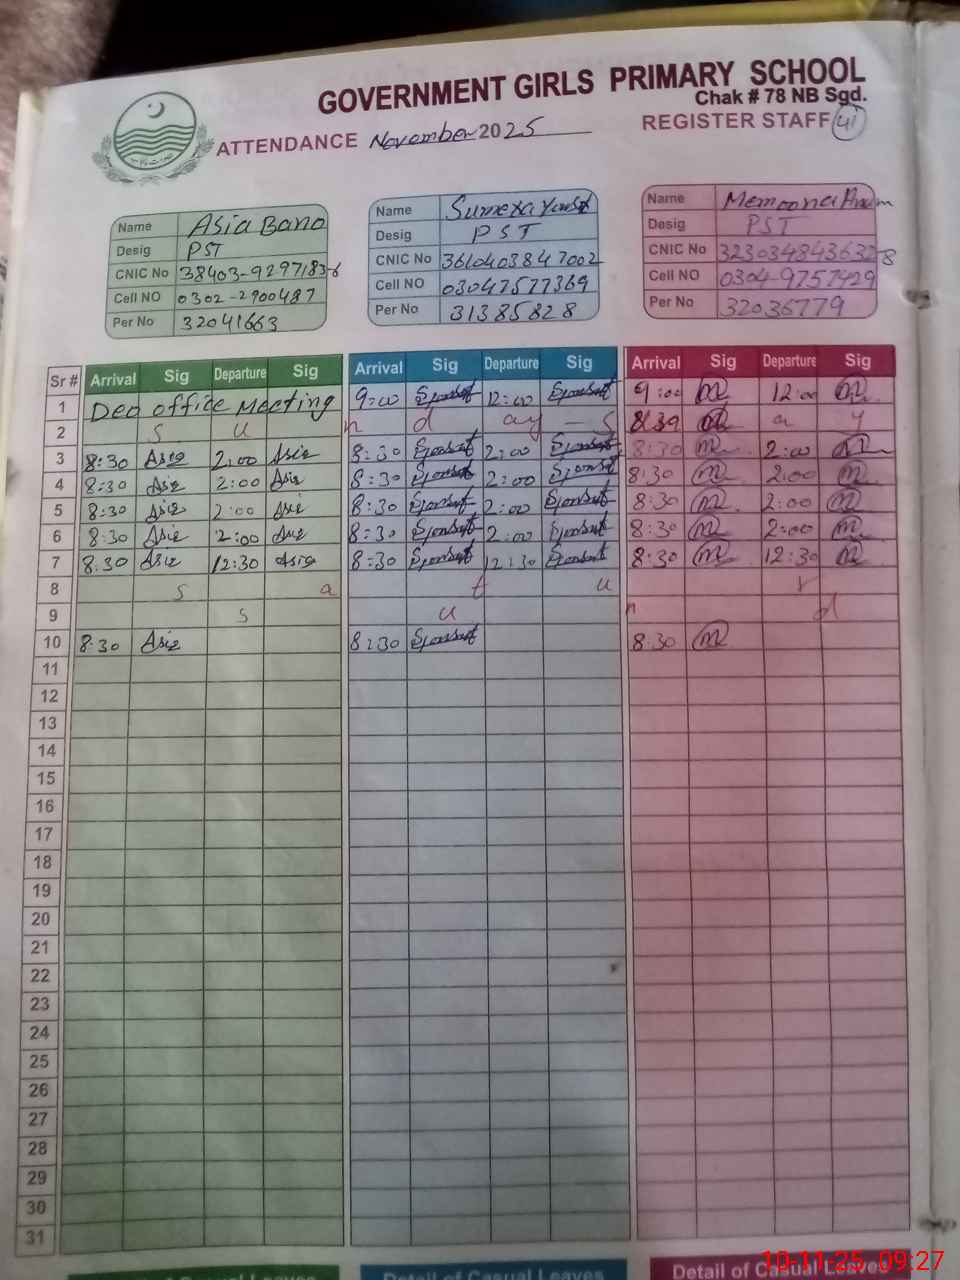 GOVERNMENT GIRLS PRIMARY SCHOOL
Chak # 78 NB Sgd.
ATTENDANCE November 2025 REGISTER STAFF 41
Name Asia Bano
Desig PST
CNIC No 38403-9297183-6
Cell NO 0302-2900487
Per No 32041663
Name Sumera
Desig PST
CNIC No 3610403847002
Cell NO 03047577369
Per No 31385828
Name Memoona Anum
Desig PST
CNIC No 3230348436328
Cell NO 0304-9757429
Per No 32036779
Sr # Arrival Sig Departure Sig Arrival Sig Departure Sig Arrival Sig Departure Sig
1 Deo office Meeting 9:00 12:00 9:00 m 12:00 m
2 S u n d ay - S 8:30 a y
3 8:30 Asia 2:00 Asia 8:30 2:00 8:30 m 2:00 m
4 8:30 Asia 2:00 Asia 8:30 2:00 8:30 m 2:00 m
5 8:30 Asia 2:00 Asia 8:30 2:00 8:30 m 2:00 m
6 8:30 Asia 2:00 Asia 8:30 2:00 8:30 m 2:00 m
7 8:30 Asia 12:30 Asia 8:30 12:30 8:30 m 12:30 m
8 S a t u r
9 S u n d
10 8:30 Asia 8:30 8:30 m
11
12
13
14
15
16
17
18
19
20
21
22
23
24
25
26
27
28
29
30
31
Casual Leaves Detail of Casual Leaves Detail of Casual Leaves
10-11-25, 09:27